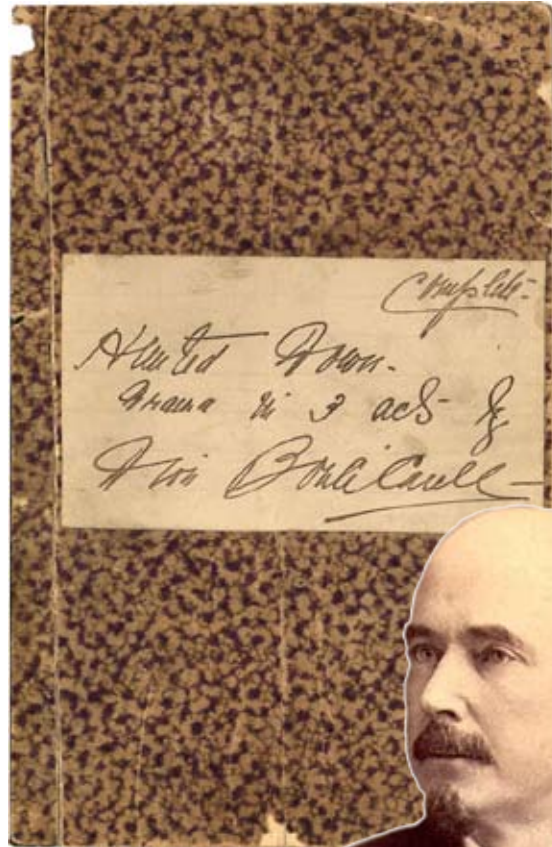 Complete.
Hunted Down.
Drama in 3 acts by
Dion Boucicault